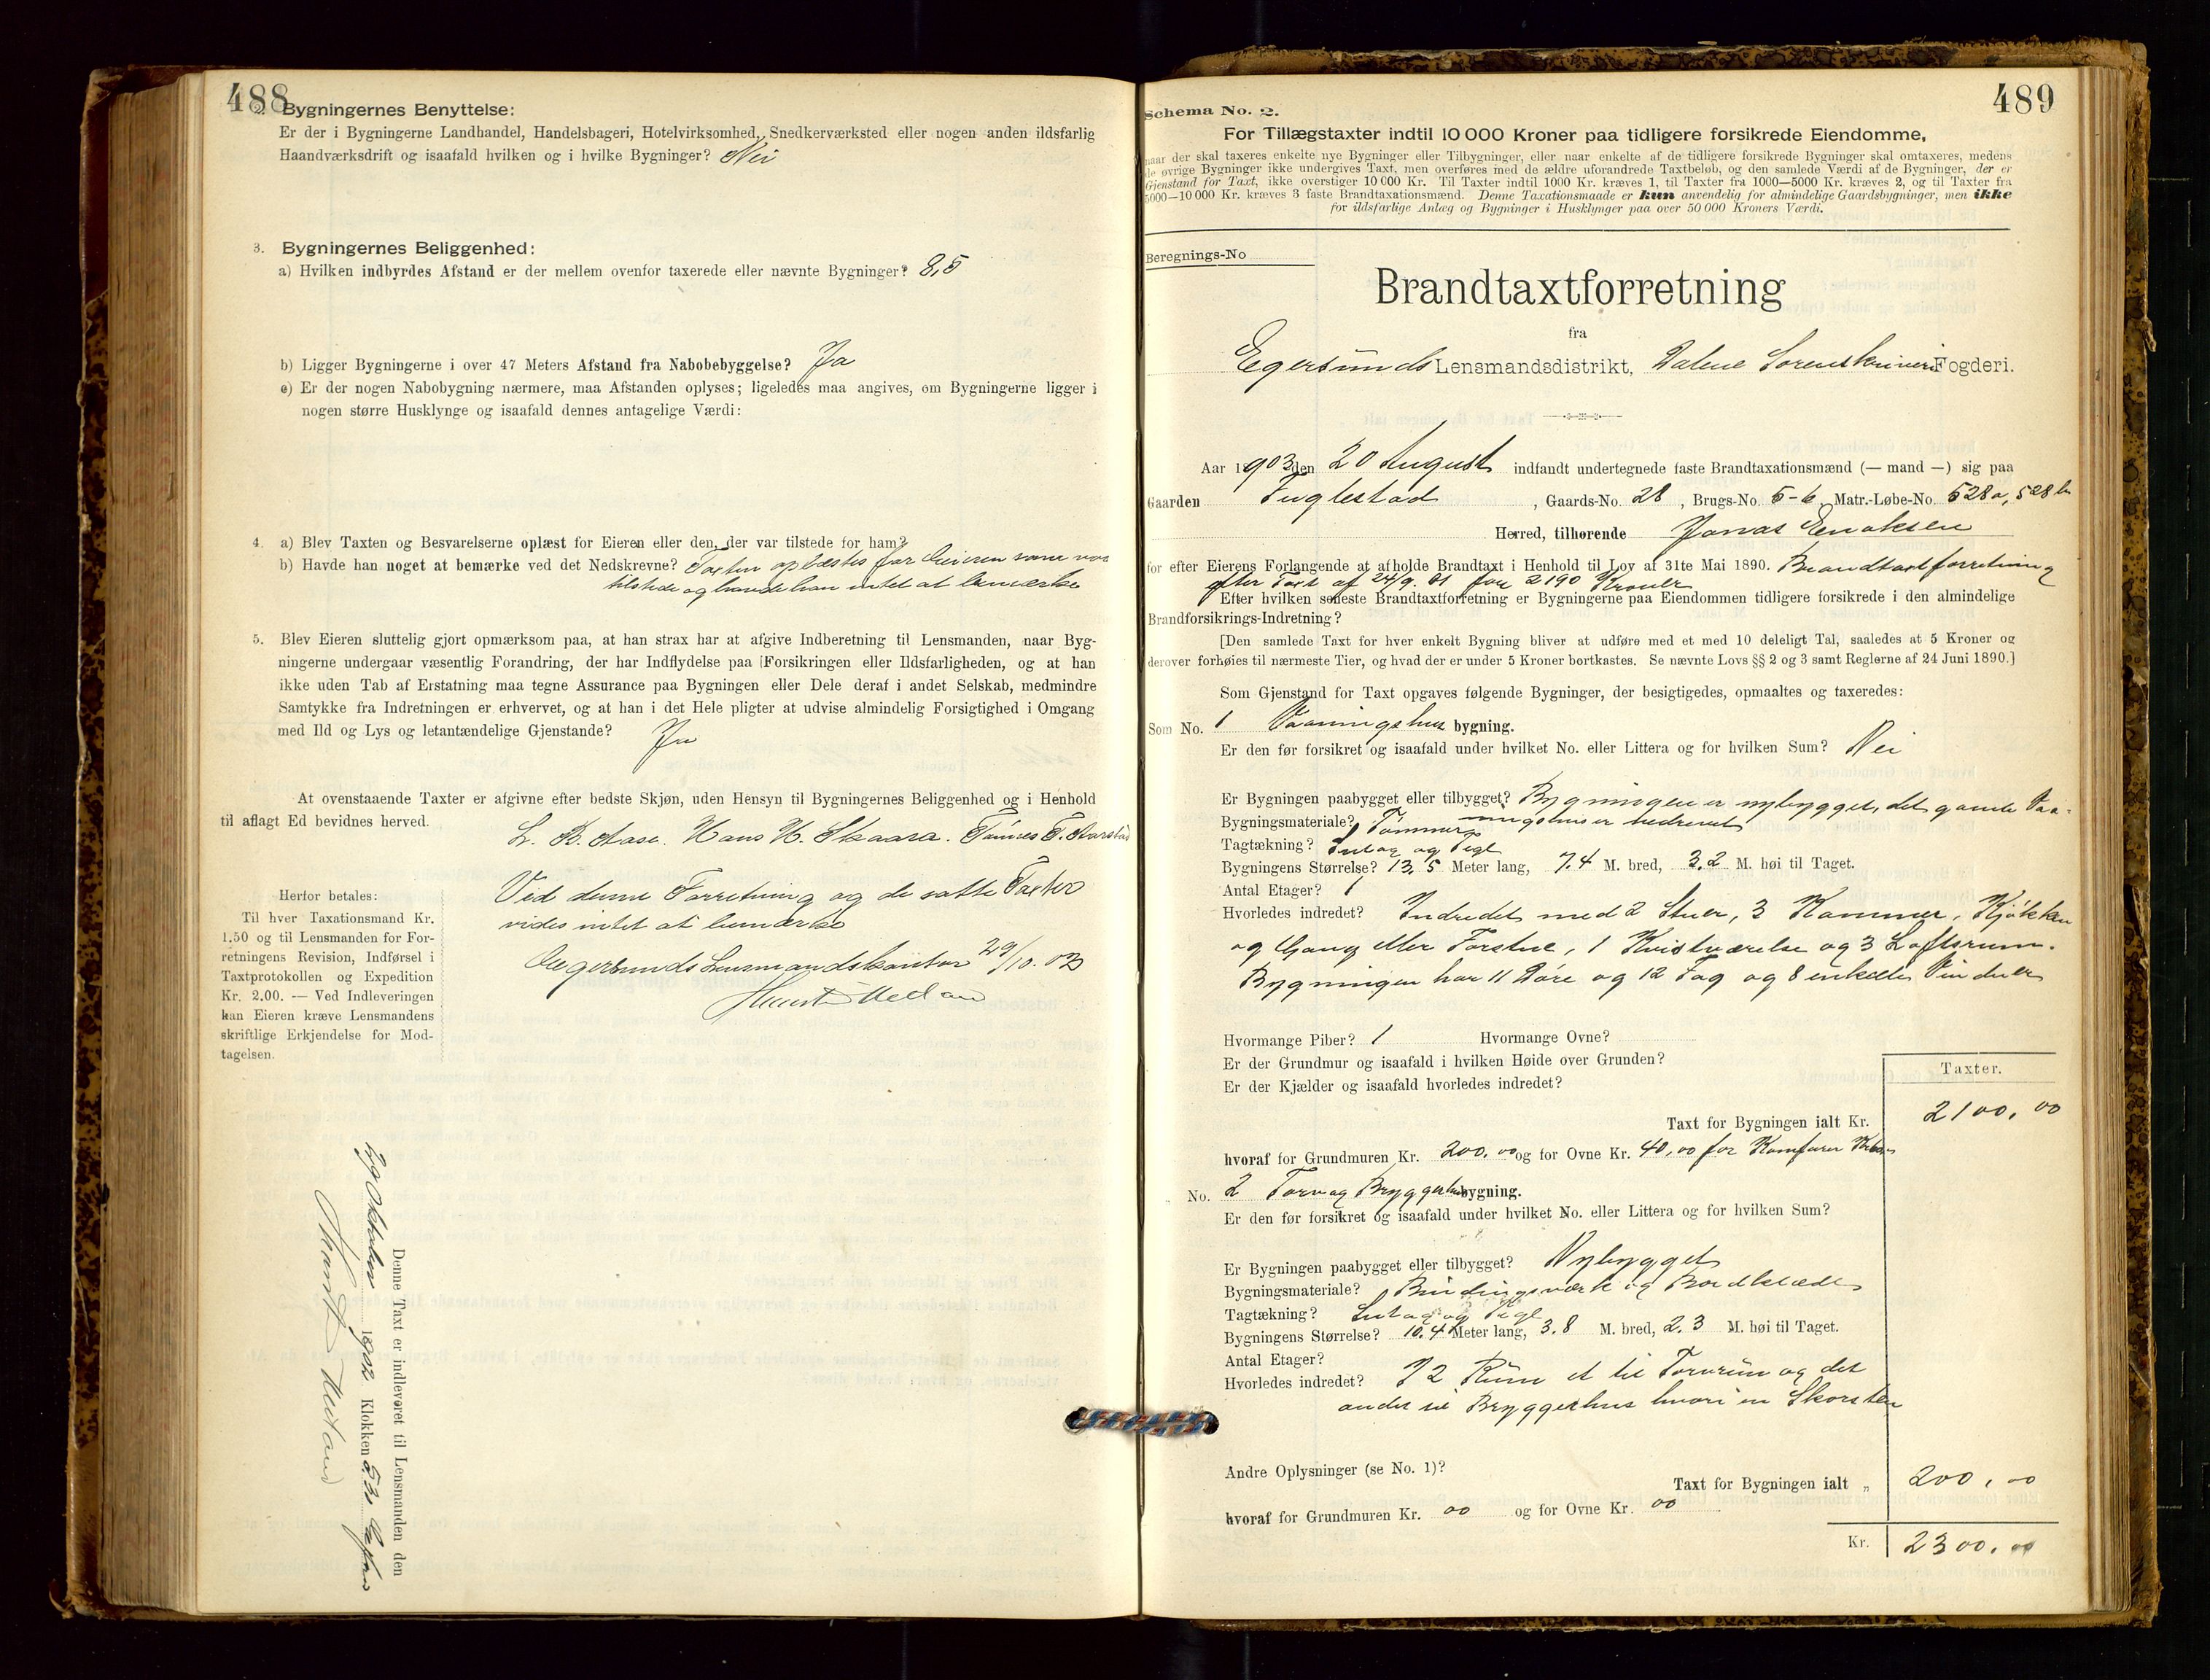 488
2. Bygningernes Benyttelse:
Er der i Bygningerne Landhandel, Handelsbageri, Hotelvirksomhed, Snedkerværksted eller nogen anden ildsfarlig
Haandværksdrift og isaafald hvilken og i hvilke Bygninger? Nei
3. Bygningernes Beliggenhed:
a) Hvilken indbyrdes Afstand er der mellem ovenfor taxerede eller nævnte Bygninger? 8,5
b) Ligger Bygningerne i over 47 Meters Afstand fra Nabobebyggelse? Ja
c) Er der nogen Nabobygning nærmere, maa Afstanden oplyses; ligeledes maa angives, om Bygningerne ligger i
nogen større Husklynge og isaafald dennes antagelige Værdi:
4. a) Blev Taxten og Besvarelserne oplæst for Eieren eller den, der var tilstede for ham?
b) Havde han noget at bemærke ved det Nedskrevne? Taxten oplæstes for Eieren som var
tilstede og havde han intet at bemærke
5. Blev Eieren sluttelig gjort opmærksom paa, at han strax har at afgive Indberetning til Lensmanden, naar Byg-
ningerne undergaar væsentlig Forandring, der har Indflydelse paa Forsikringen eller Ildsfarligheden, og at han
ikke uden Tab af Erstatning maa tegne Assurance paa Bygningen eller Dele deraf i andet Selskab, medmindre
Samtykke fra Indretningen er erhvervet, og at han i det Hele pligter at udvise almindelig Forsigtighed i Omgang
med Ild og Lys og letantændelige Gjenstande? Ja
At ovenstaaende Taxter er afgivne efter bedste Skjøn, uden Hensyn til Bygningernes Beliggenhed og i Henhold
til aflagt Ed bevidnes herved.
L. B. Aase. Hans H. Skaara. Tønnes T. Aarstad
Herfor betales:
Til hver Taxationsmand Kr.
1.50 og til Lensmanden for For-
retningens Revision, Indførsel i
Taxtprotokollen og Expedition
Kr. 2.00. — Ved Indleveringen
kan Eieren kræve Lensmandens
skriftlige Erkjendelse for Mod-
tagelsen.
Ved denne Forretning og de satte Taxter
vides intet at bemærke
Eegersunds Lensmandskontor 29/10. 03
Denne Taxt er indleveret til Lensmanden den
Oktober 1903 Klokken
489
Schema No. 2.
For Tillægstaxter indtil 10 000 Kroner paa tidligere forsikrede Eiendomme,
naar der skal taxeres enkelte nye Bygninger eller Tilbygninger, eller naar enkelte af de tidligere forsikrede Bygninger skal omtaxeres, medens
de øvrige Bygninger ikke undergives Taxt, men overføres med de ældre uforandrede Taxtbeløb, og den samlede Værdi af de Bygninger, der er
Gjenstand for Taxt, ikke overstiger 10 000 Kr. Til Taxter indtil 1000 Kr. kræves 1, til Taxter fra 1000—5000 Kr. kræves 2, og til Taxter fra
5000—10 000 Kr. kræves 3 faste Brandtaxationsmænd. Denne Taxationsmaade er kun anvendelig for almindelige Gaardsbygninger, men ikke
for ildsfarlige Anlæg og Bygninger i Husklynger paa over 50 000 Kroners Værdi.
Beregnings-No
Brandtaxtforretning
fra
Egersunds Lensmandsdistrikt, Dalene Sorenskriveri Fogderi.
Aar 1903 den 20 August indfandt undertegnede faste Brandtaxationsmænd (— mand —) sig paa
Gaarden Fuglestad, Gaards-No. 28, Brugs-No. 5-6, Matr.-Løbe-No. 528a, 528b
Herred, tilhørende Jonas Enoksen
for efter Eierens Forlangende at afholde Brandtaxt i Henhold til Lov af 31te Mai 1890. Brandtaxtforretning
efter Taxt af 24/9. 01 for 2190 Kroner
Efter hvilken seneste Brandtaxtforretning er Bygningerne paa Eiendommen tidligere forsikrede i den almindelige
Brandforsikrings-Indretning?
[Den samlede Taxt for hver enkelt Bygning bliver at udføre med et med 10 deleligt Tal, saaledes at 5 Kroner og
derover forhøies til nærmeste Tier, og hvad der er under 5 Kroner bortkastes. Se nævnte Lovs §§ 2 og 3 samt Reglerne af 24 Juni 1890.]
Som Gjenstand for Taxt opgaves følgende Bygninger, der besigtigedes, opmaaltes og taxeredes:
Som No. 1 Vaaningshus bygning.
Er den før forsikret og isaafald under hvilket No. eller Littera og for hvilken Sum? Nei
Er Bygningen paabygget eller tilbygget? Bygningen er nybygget, det gamle Vaa-
ningshus er nedrevet
Bygningsmateriale? Tømmer
Tagtækning? Sutag og Tegl
Bygningens Størrelse? 13,5 Meter lang, 7,4 M. bred, 3,2 M. høi til Taget.
Antal Etager? 1
Hvorledes indredet? Indredet med 2 Stuer, 3 Kammer, Kjøkken
og Gang eller Forstue, 1 Kvistværelse og 3 Loftsrum.
Bygningen har 11 Døre og 12 Fag og 8 enkelte Vinduer
Hvormange Piber? 1 Hvormange Ovne?
Er der Grundmur og isaafald i hvilken Høide over Grunden?
Er der Kjælder og isaafald hvorledes indredet?
Taxter.
Taxt for Bygningen ialt Kr. 2100,00
hvoraf for Grundmuren Kr. 200,00 og for Ovne Kr. 40,00 for Komfurer
No. 2 Torv og Bryggerhus bygning.
Er den før forsikret og isaafald under hvilket No. eller Littera og for hvilken Sum?
Er Bygningen paabygget eller tilbygget? Nybygget
Bygningsmateriale? Bindingsværk og Bordklæde
Tagtækning? Sutag og Tegl
Bygningens Størrelse? 10,4 Meter lang, 3,8 M. bred, 2,3 M. høi til Taget.
Antal Etager?
Hvorledes indredet? I 2 Rum et til Torvrum og det
andet til Bryggerhus hvori en Skorsten
Andre Oplysninger (se No. 1)?
Taxt for Bygningen ialt „ 200,00
hvoraf for Grundmuren Kr. 00 og for Ovne Kr. 00
Kr. 2300,00